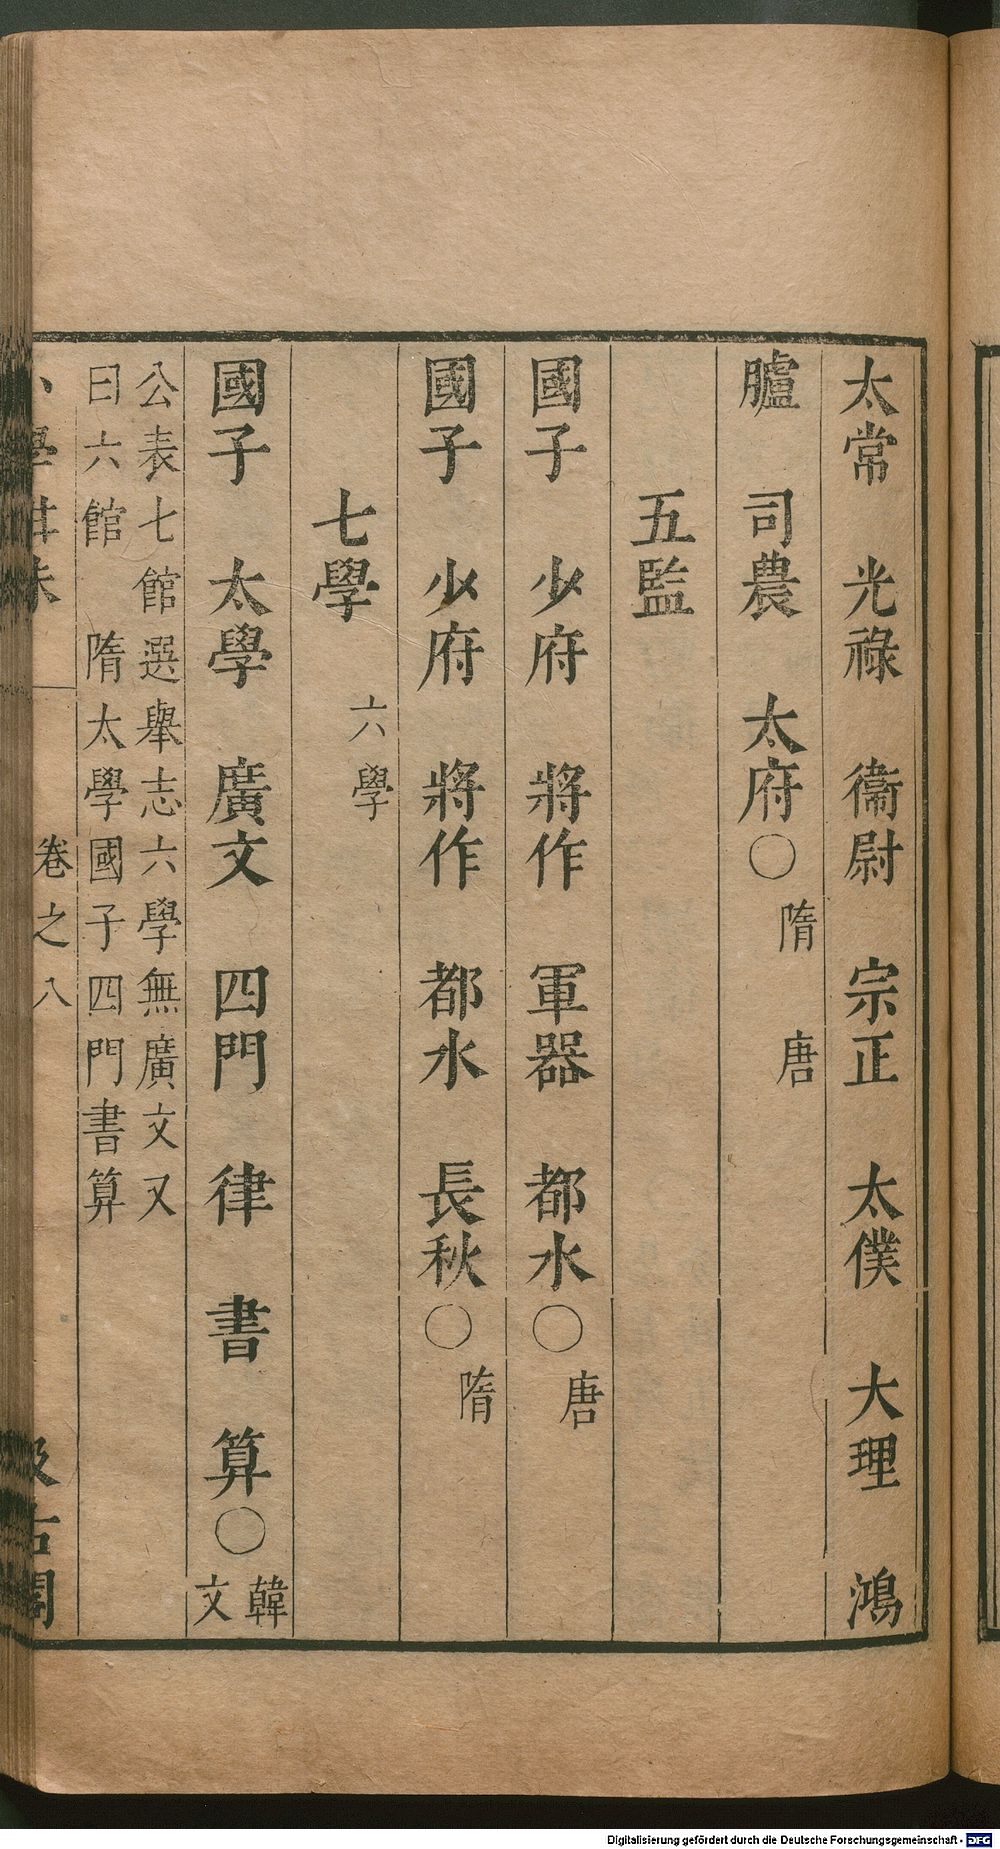 太常　光祿　衞尉　宗正　太僕　大理　鴻
臚　司農　太府○隋　唐
五監
國子　少府　將作　軍器　都水○唐
國子　少府　將作　都水　長秋○隋
七學　六學
國子　太學　廣文　四門　律　書　算○韓文
公表七館選舉志六學無廣文又
曰六館　隋太學國子四門書算
卷之八
Digitalisierung gefördert durch die Deutsche Forschungsgemeinschaft - DFG